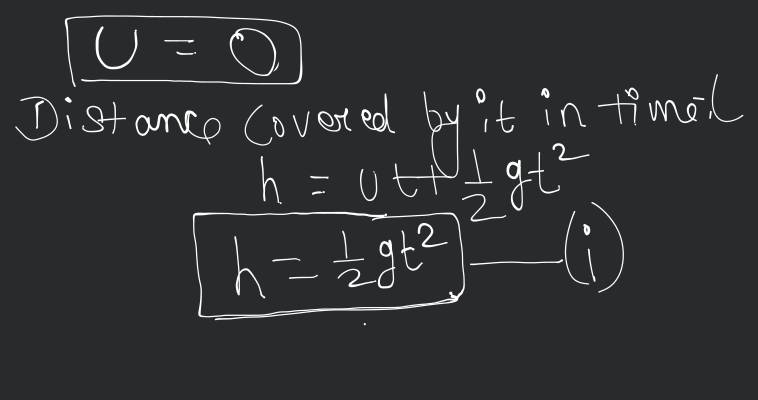 U = 0
Distance covered by it in time t
h = ut + 1/2 gt²
h = 1/2 gt² —— (i)